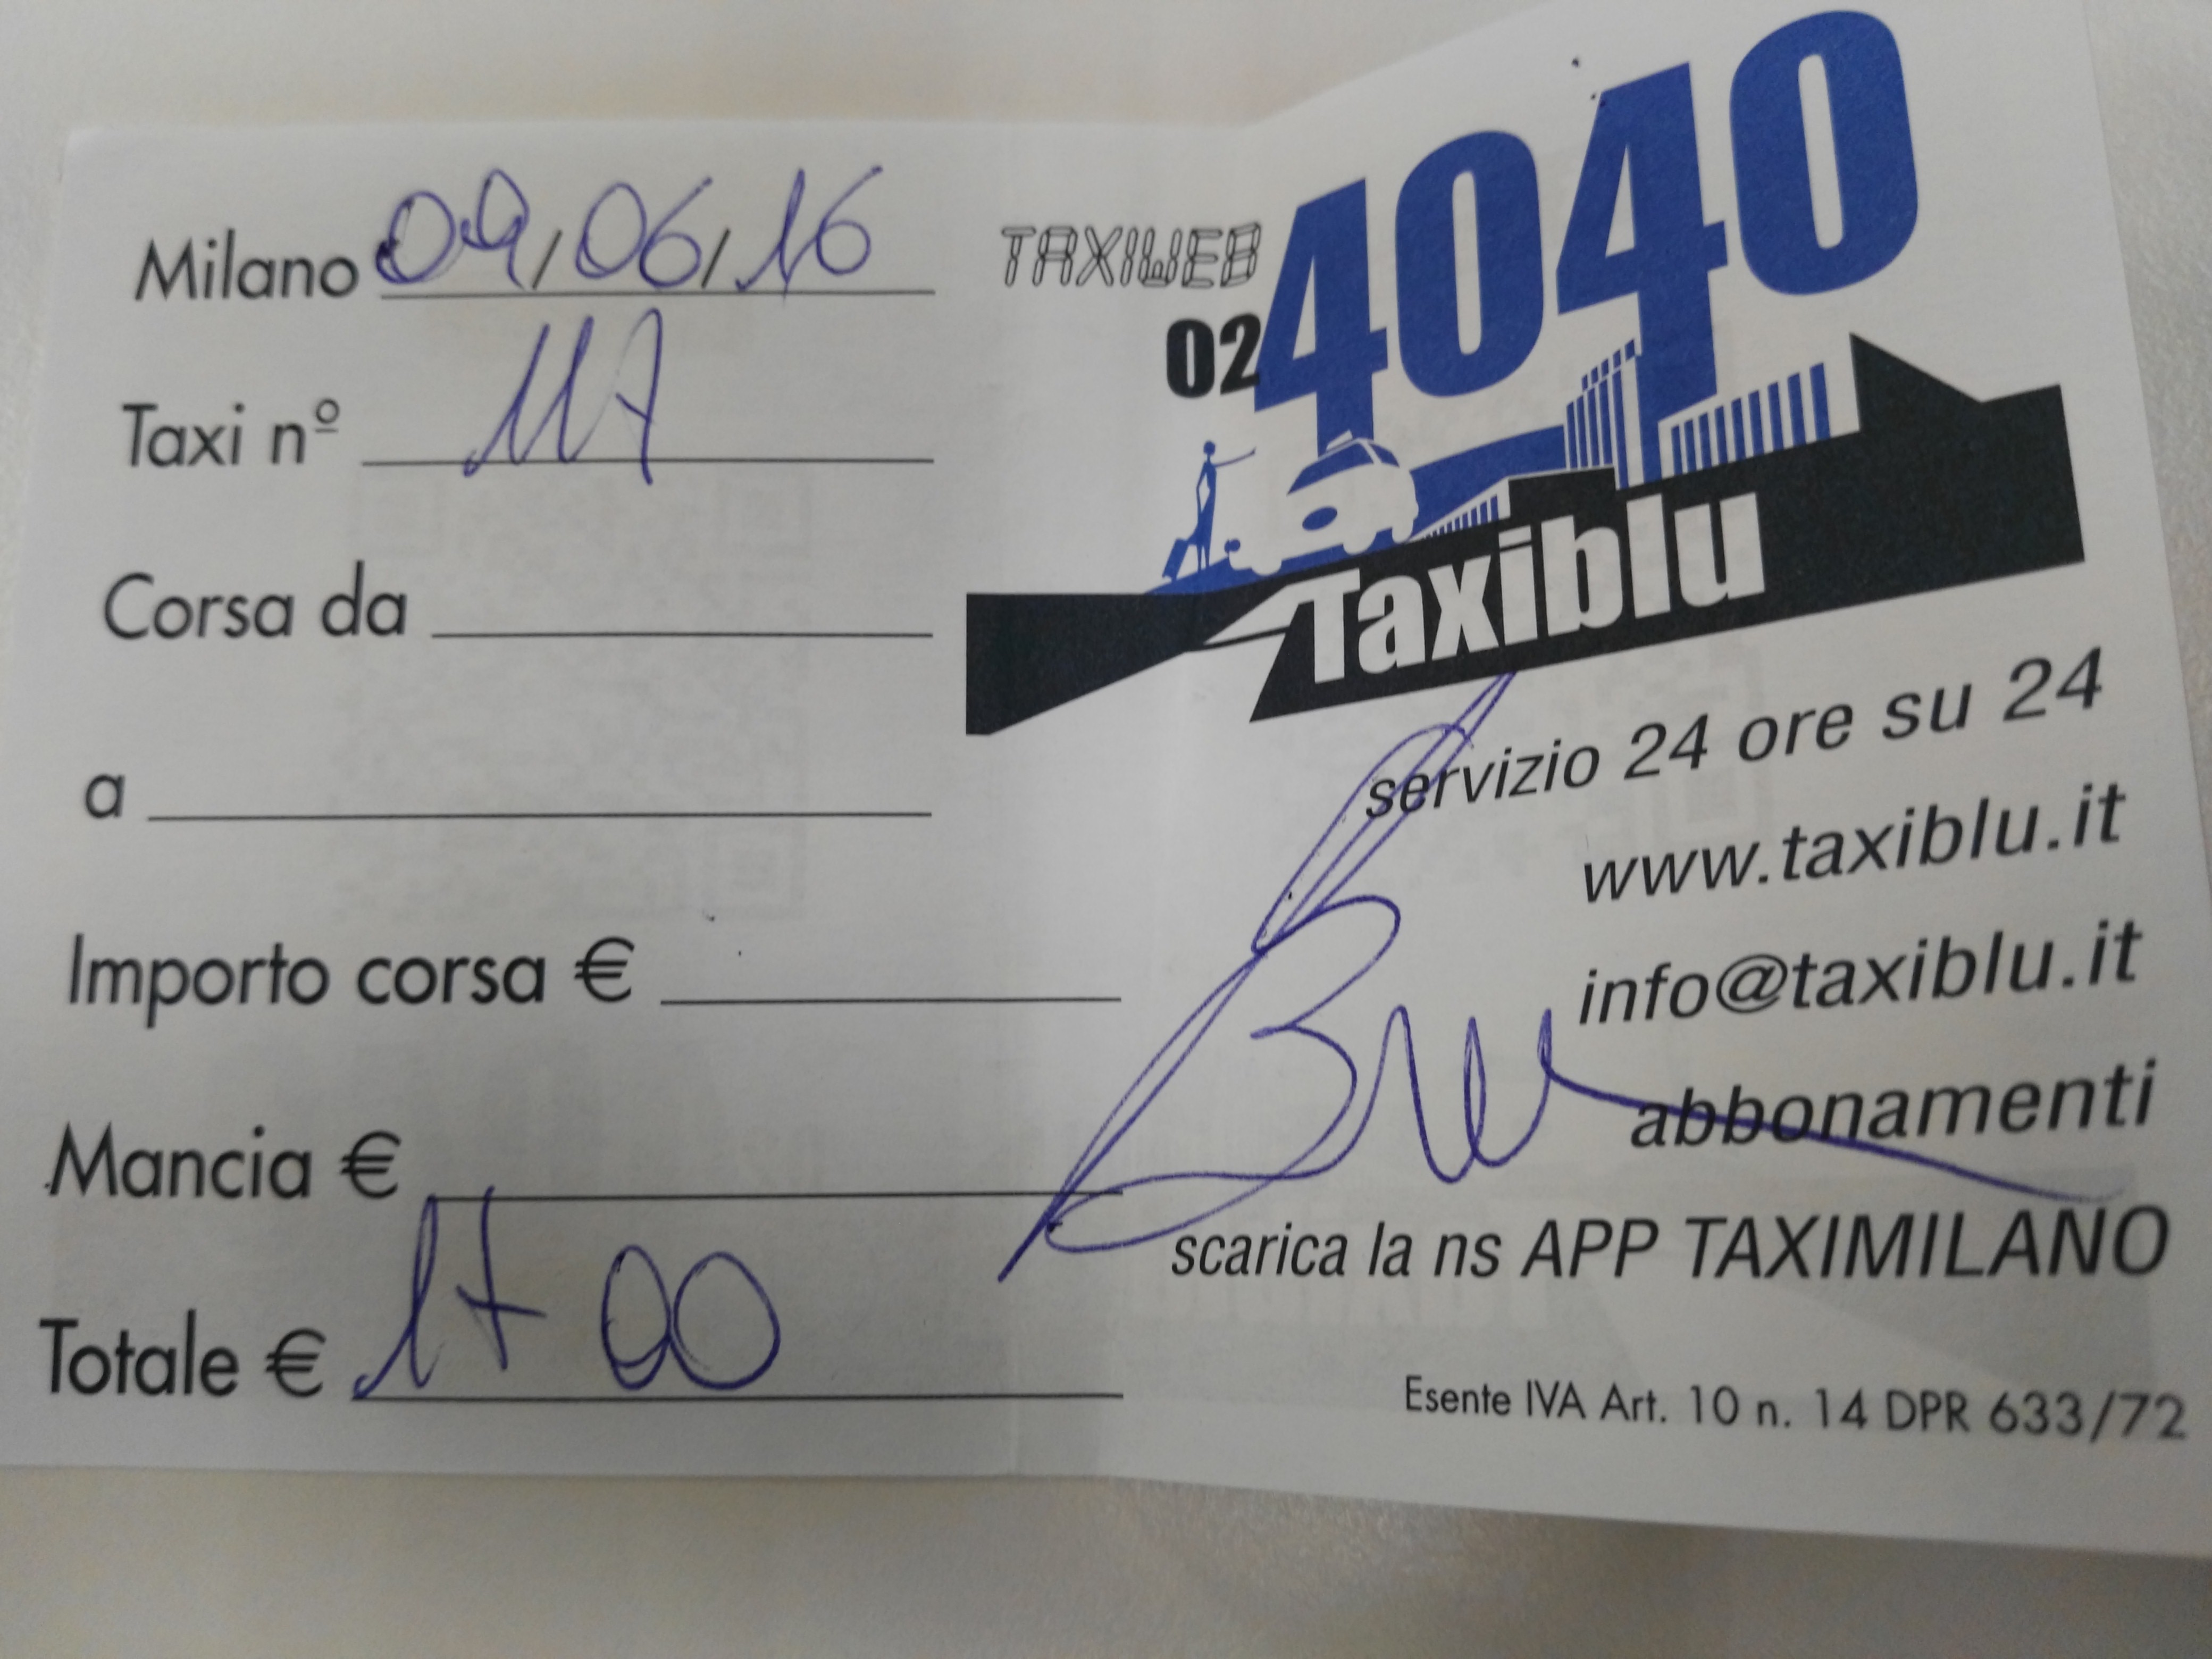 Milano 09/06/16
Taxi nº 117
Corsa da
a
Importo corsa €
Mancia €
Totale € 17 00
TAXIWEB
02 4040
Taxiblu
servizio 24 ore su 24
www.taxiblu.it
info@taxiblu.it
abbonamenti
scarica la ns APP TAXIMILANO
Esente IVA Art. 10 n. 14 DPR 633/72